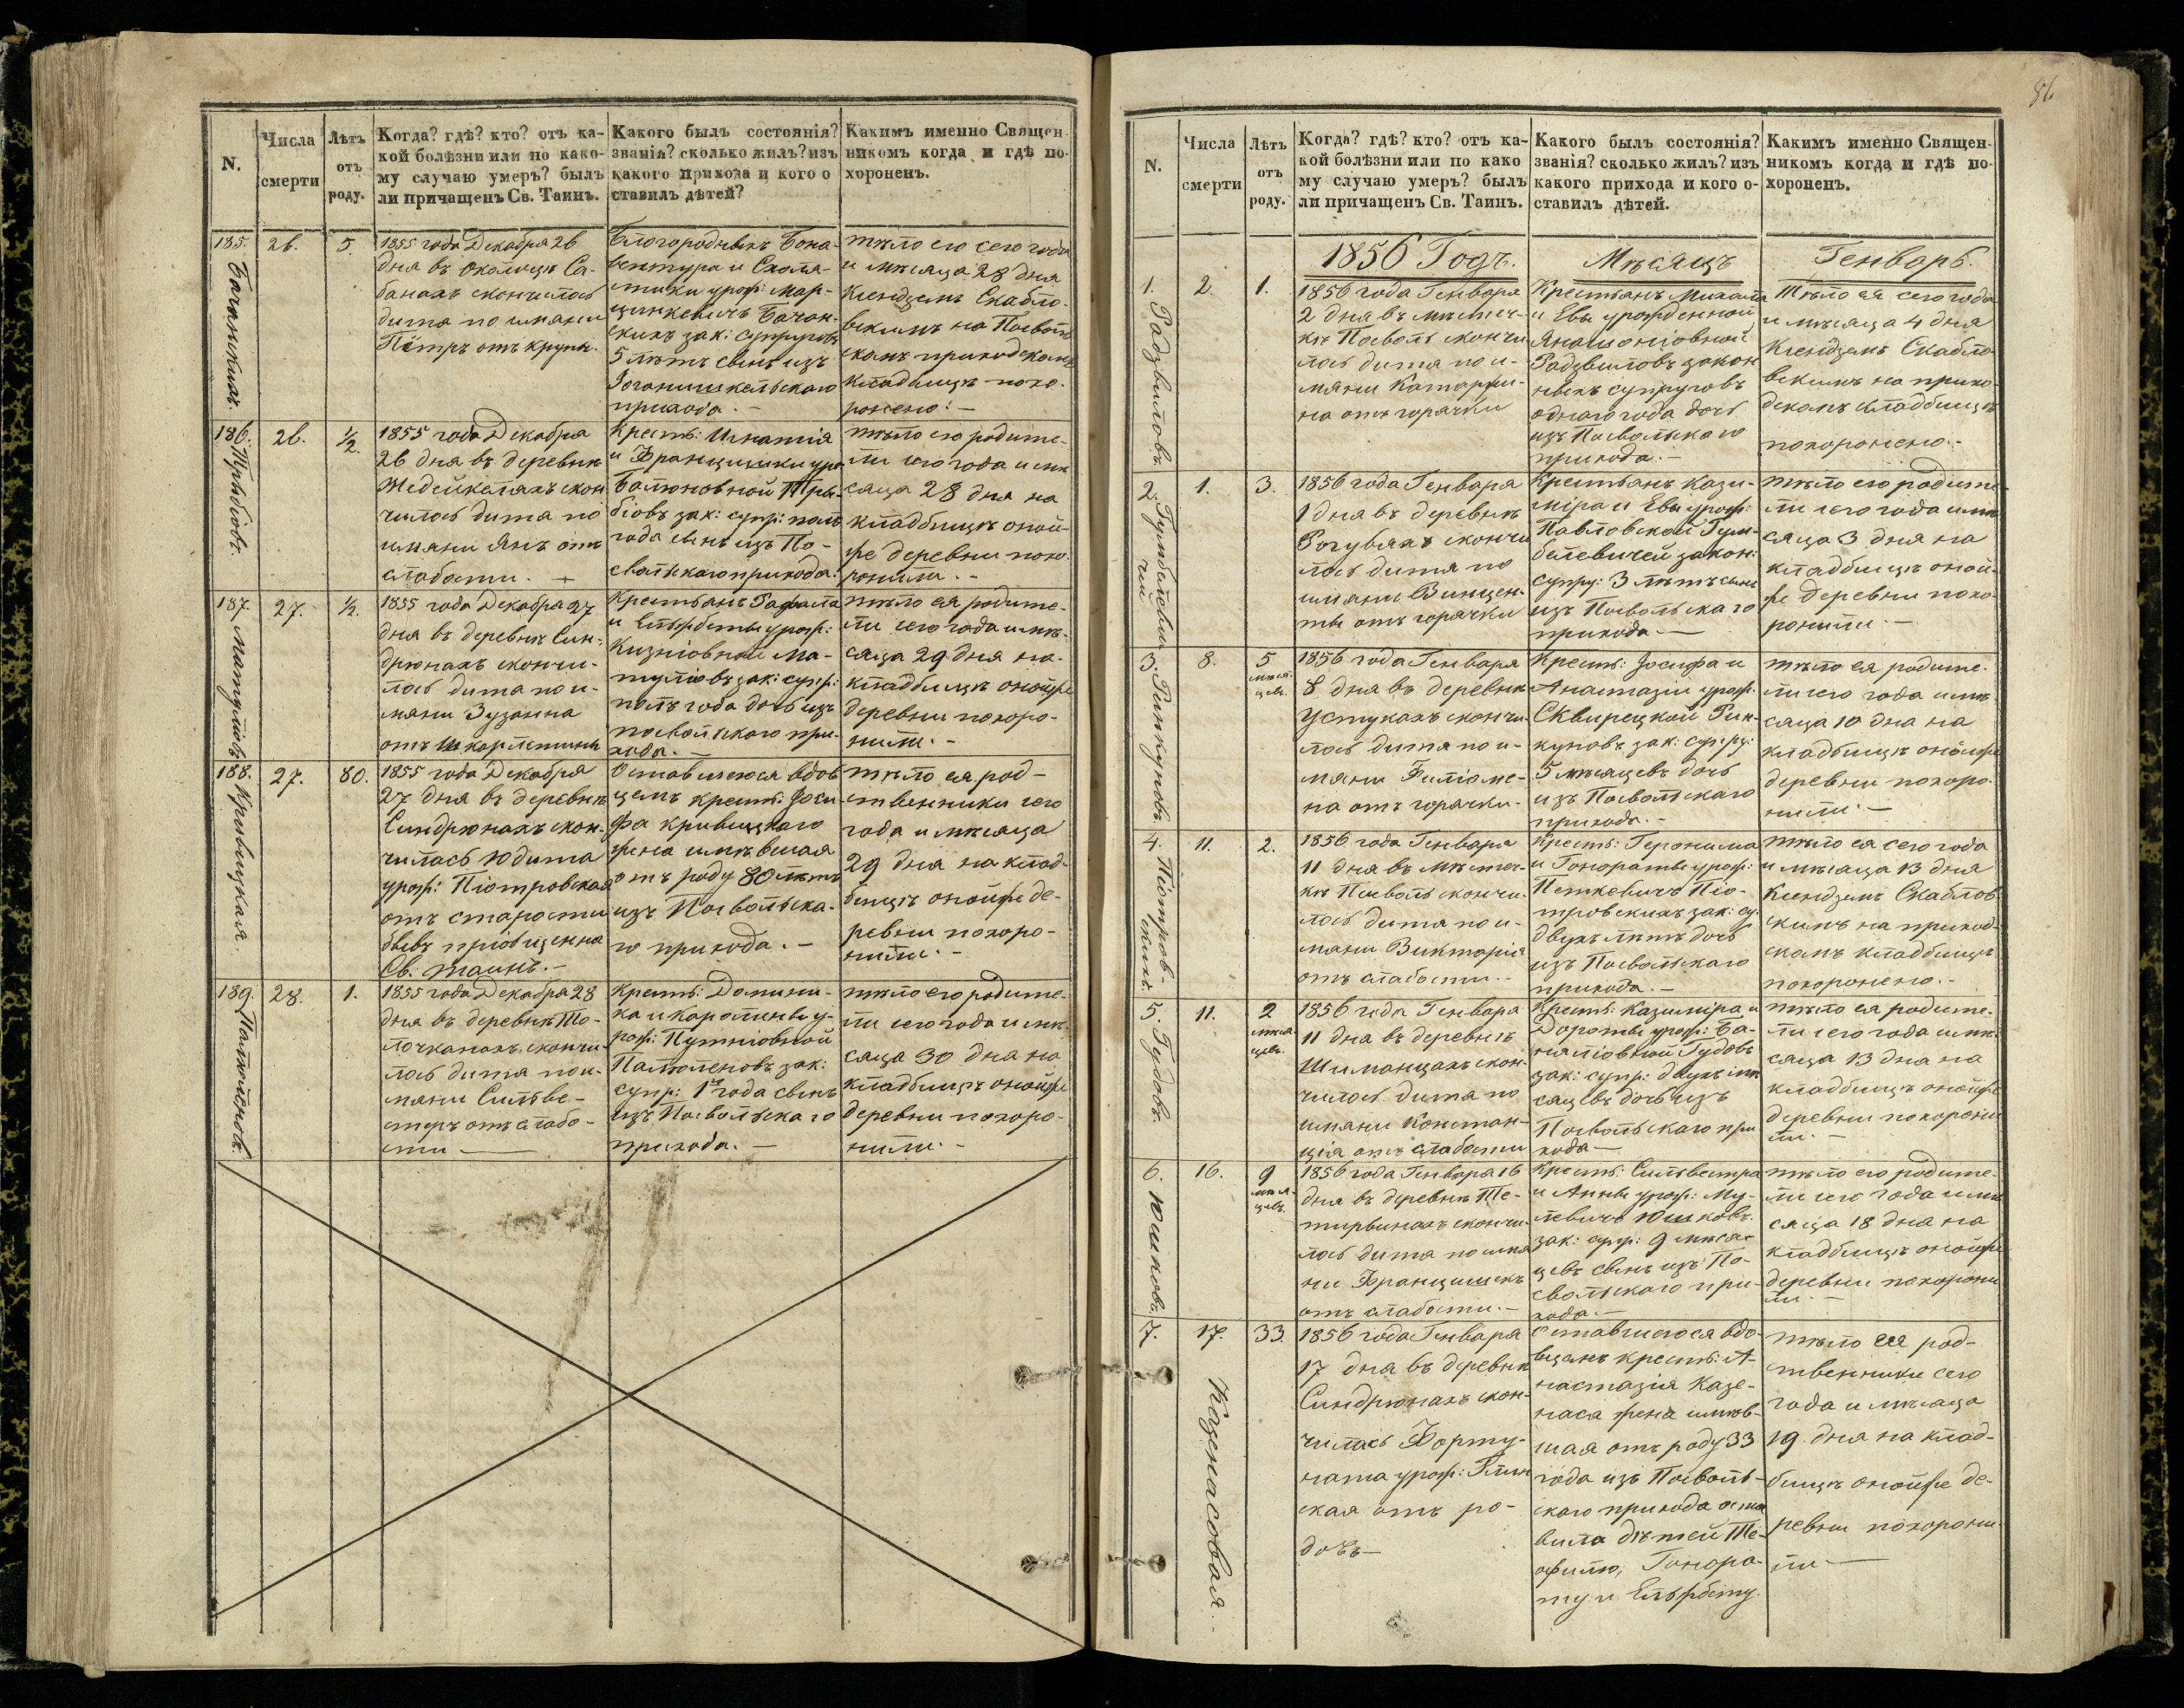 86
N.
Числа смерти
Лѣтъ отъ роду.
Когда? гдѣ? кто? отъ ка-
кой болѣзни или по како-
му случаю умеръ? былъ
ли причащенъ Св. Таинъ.
Какого былъ состоянія?
званія? сколько жилъ? изъ
какого прихода и кого о
ставилъ дѣтей?
Какимъ именно Священ-
никомъ когда и гдѣ по-
хороненъ.
185.
26.
5.
1855 года Декабря 26
дня въ околицѣ Са-
банахъ скончалось
дитя по имяни
Пётръ отъ крупа.
Благородныхъ Бона-
вентура и Схола-
стики урож: Мар-
цинкевичъ Бачан-
скихъ зак: супруговъ
5 лѣтъ сынъ изъ
прихода. –
тѣло его сего года
и мѣсяца 28 дня
Ксендземъ Скабло-
вскимъ на Посволь
скомъ приходскомъ
кладбищѣ похо-
ронено: –
186.
26.
½.
1855 года Декабря
26 дня въ деревнѣ
Жедейкеляхъ скон
чалось дитя по
имяни Янъ отъ
слабости. –
Крестъ: Игнатія
и Францишки уро
года сынъ изъ По-
свольскаго прихода.
тѣло его родите-
ли сего года и мѣ
сяца 28 дня на
кладбищѣ оной-
же деревни похо
ронили. –
187.
Матуліовъ
27.
½.
1855 года Декабря 27
дня въ деревнѣ Син-
дрюнахъ сконча-
лось дитя по и-
мяни Зузанна
отъ шкарлатины
Крестьянъ Рафаила
и Ельжбеты урож:
Кизніовной Ма-
туліовъ зак: супр:
полъ года дочь изъ
посвольскаго при-
хода. –
тѣло ея родите-
ли сего года и мѣ-
сяца 29 дня на
кладбищѣ онойже
деревни похоро-
нили. –
188.
Кривицкая
27.
80.
1855 года Декабря
27 дня въ деревнѣ
Синдрюнахъ скон-
чалась Юдита
урож: Піотровская
отъ старости
бывъ пріобщенна
Св. Таинъ. –
Оставшегося вдов
цемъ крестъ: Іоси
фа Кривицкаго
жена имѣвшая
отъ роду 80 лѣтъ
изъ Посвольска-
го прихода. –
тѣло ея род-
ственники сего
года и мѣсяца
29 дня на клад-
бищѣ онойже де-
ревни похоро-
нили. –
189.
Палюленовъ.
28.
1.
1855 года Декабря 28
дня въ деревнѣ То-
лочканахъ сконча-
лось дитя по и-
мяни Сильве-
стеръ отъ слабо-
сти –
Крестъ: Домини-
ка и Каролины у-
рож: Путніовной
Палюленовъ зак:
супр: 1го года сынъ
изъ Посвольскаго
прихода. –
тѣло его родите-
ли сего года и мѣ-
сяца 30 дня на
кладбищѣ онойже
деревни похоро-
нили. –
N.
Числа смерти
Лѣтъ отъ роду.
Когда? гдѣ? кто? отъ ка-
кой болѣзни или по како
му случаю умеръ? былъ
ли причащенъ Св. Таинъ.
Какого былъ состоянія?
званія? сколько жилъ? изъ
какого прихода и кого о-
ставилъ дѣтей.
Какимъ именно Священ-
никомъ когда и гдѣ по-
хороненъ.
1856 Годъ.
Мѣсяцъ
Генварь.
1.
Радзвиловъ
2.
1.
1856 года Генваря
2 дня въ мѣстеч-
кѣ Посволь сконча
лось дитя по и-
мяни Катаржи-
на отъ горячки
Крестьянъ Михаила
и Евы урожденной
Янашоніовной
Радзвиловъ закон
ныхъ супруговъ
одного года дочь
изъ Посвольскаго
прихода. –
Тѣло ея сего года
и мѣсяца 4 дня
Ксендземъ Скабло-
вскимъ на прихо-
дскомъ кладбищѣ
похоронено. –
2.
Гумбалеви-
чей
1.
3.
1856 года Генваря
1 дня въ деревнѣ
Рагувяхъ сконча
лось дитя по
имяни Винцен-
ты отъ горячки
Крестьянъ Кази-
міра и Евы урож:
Павловской Гум-
балевичей закон:
супру: 3 лѣтъ сынъ
изъ Посвольскаго
прихода. –
тѣло его родите-
ли сего года и мѣ
сяца 3 дня на
кладбищѣ оной-
же деревни похо-
ронили. –
3.
Ринкуновъ.
8.
5
мѣся-
цевъ.
1856 года Генваря
8 дня въ деревнѣ
Устукахъ сконча-
лось дитя по и-
мяни Филоме-
на отъ горячки.
Крестъ: Іосифа и
Анастазіи урож:
Сквирецкой Рин-
куновъ зак: супру:
5 мѣсяцевъ дочь
изъ Посвольскаго
прихода. –
тѣло ея родите-
ли сего года и мѣ
сяца 10 дня на
кладбищѣ онойже
деревни похоро-
нили. –
4.
Піотров-
скихъ.
11.
2.
1856 года Генваря
11 дня въ мѣстеч-
кѣ Посволь сконча-
лось дитя по и-
мяни Викторія
отъ слабости. –
Крестъ: Геронима
и Гонораты урож:
Петкевичъ Піо-
тровскихъ зак: су.
двухъ лѣтъ дочь
изъ Посвольскаго
прихода. –
тѣло ея сего года
и мѣсяца 13 дня
Ксендземъ Скаблов
скимъ на приход-
скомъ кладбищѣ
похоронено. –
5.
Гудовъ.
11.
2
мѣся-
цевъ.
1856 года Генваря
11 дня въ деревнѣ
Шиманцахъ скон-
чалось дитя по
имяни Констан-
ція отъ слабости
Крестъ: Казиміра и
Дороты урож: Ба-
наліовной Гудовъ
зак: супр: двухъ мѣ
сяцевъ дочь изъ
Посвольскаго при
хода –
тѣло ея родите-
ли сего года и мѣ-
сяца 13 дня на
кладбищѣ онойже
деревни похорони
ли. –
6.
Юшковъ
16.
9
мѣся-
цевъ.
1856 года Генваря 16
дня въ деревнѣ Те-
тирвинахъ сконча-
лось дитя по имя
ни Францишекъ
отъ слабости. –
Крестъ: Сильвестра
и Анны урож: Му-
левичъ Юшковъ
зак: супр: 9 мѣся-
цевъ сынъ изъ По-
свольскаго при-
хода. –
тѣло его родите-
ли сего года и мѣ
сяца 18 дня на
кладбищѣ онойже
деревни похорони
ли. –
7.
Казенасовая.
17.
33.
1856 года Генваря
17 дня въ деревнѣ
Синдрюнахъ скон-
чилась Форту-
ната урож: Глин
ская отъ ро-
довъ –
Оставшегося вдо-
вцемъ крестъ: А-
настазія Казе-
наса жена имѣв-
шая отъ роду 33
года изъ Посволь-
скаго прихода оста
вила дѣтей Те-
офилю, Гонора-
ту и Ельжбету.
тѣло ея род-
ственники сего
года и мѣсяца
19 дня на клад-
бищѣ онойже де-
ревни похорони-
ли –